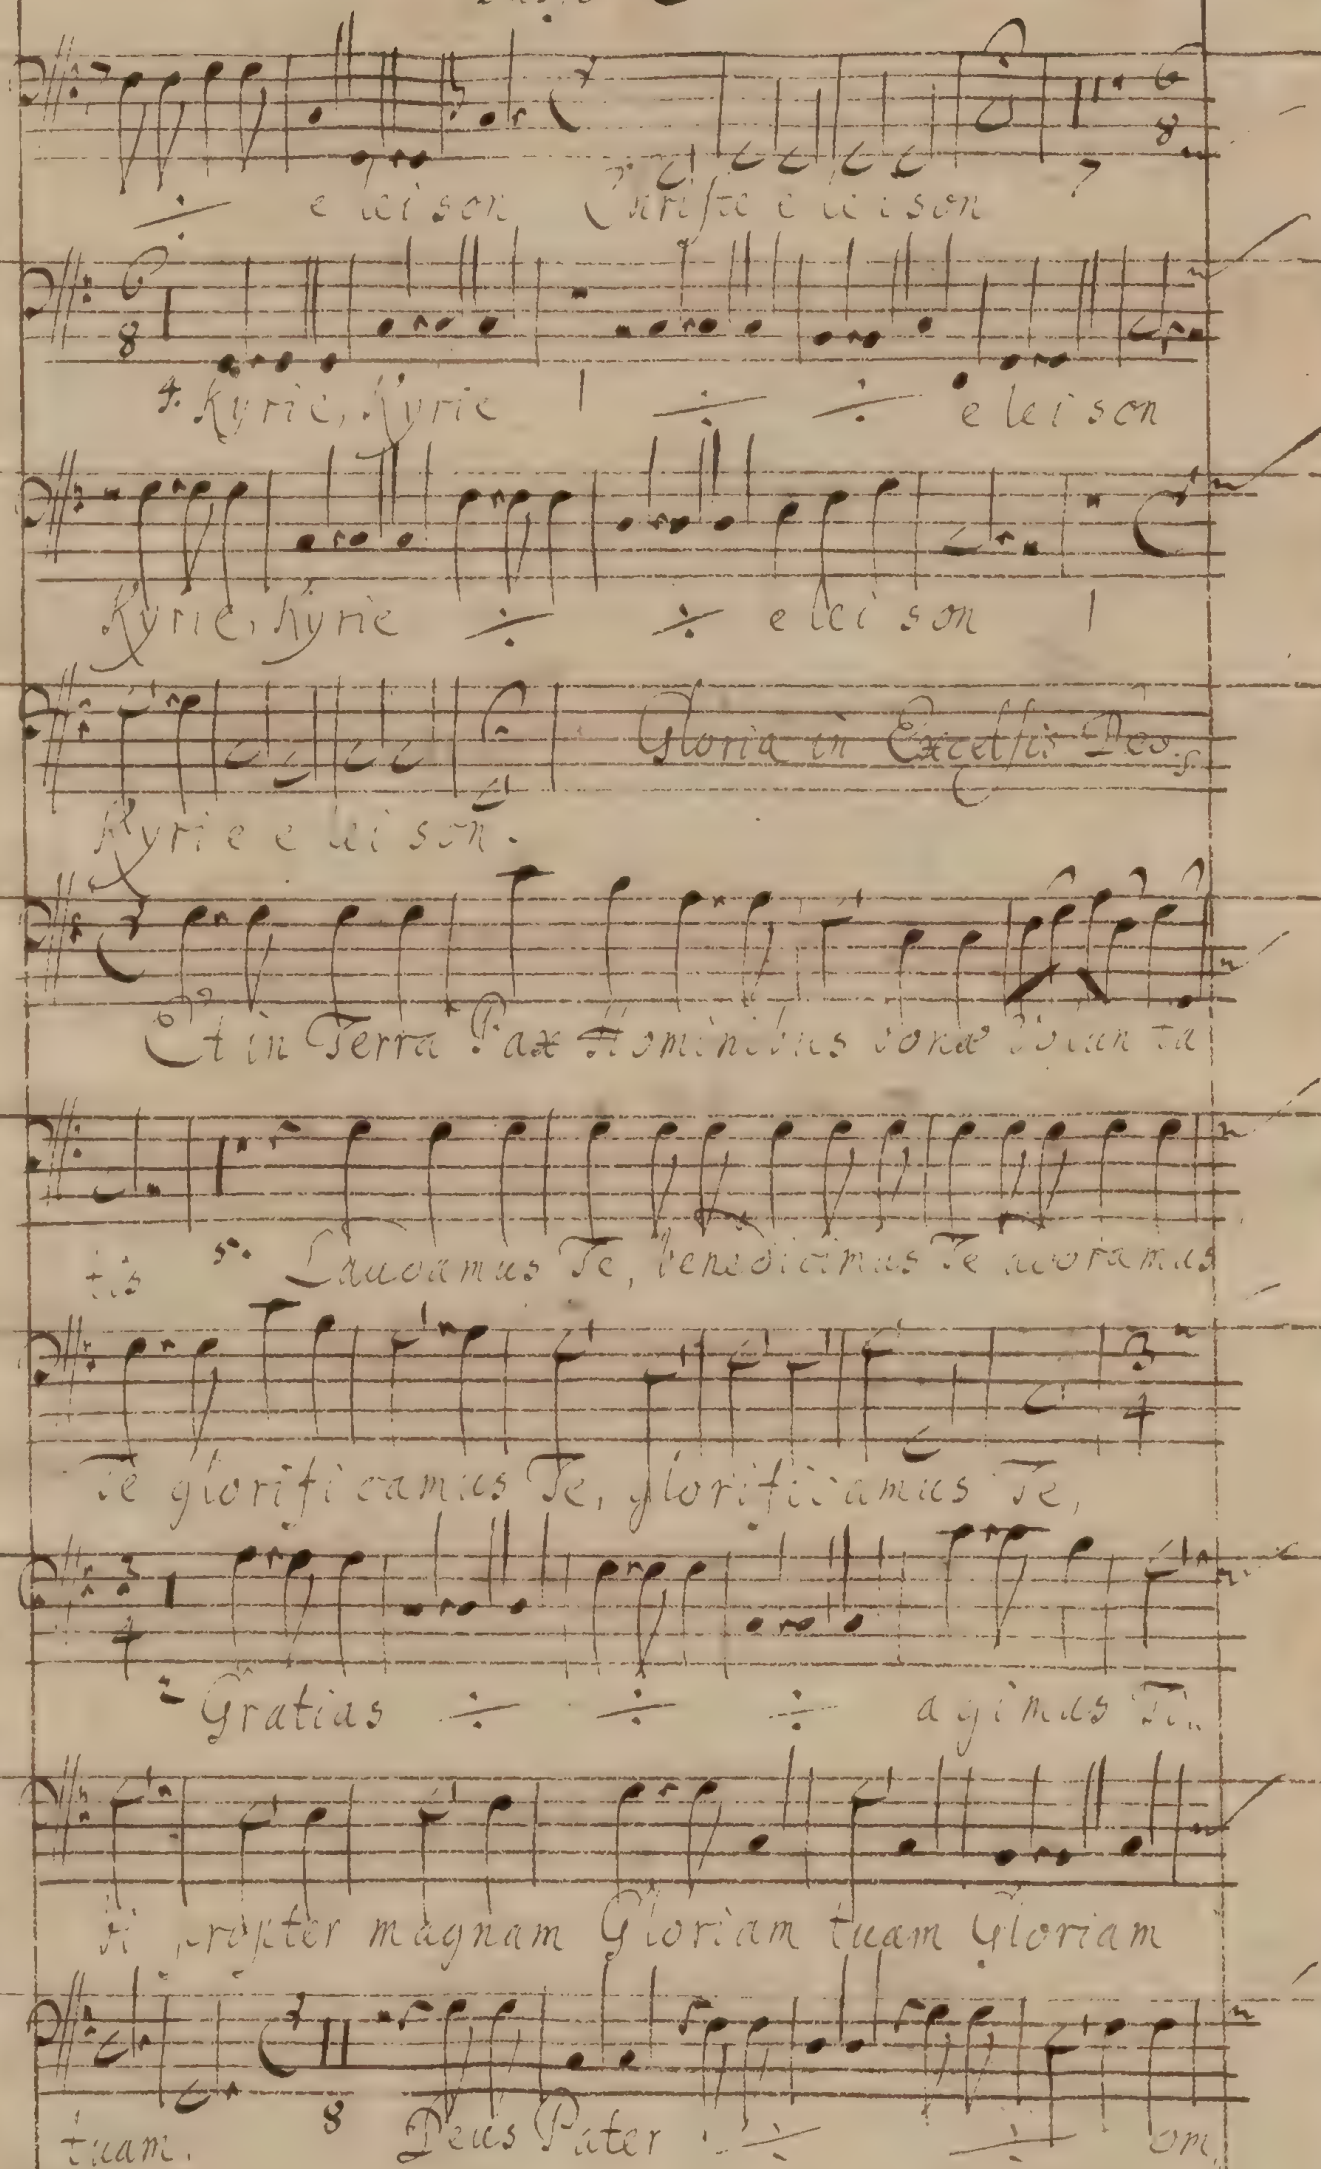 ÷ e lei son Christe e le i son 7
4. Kyrie, Kyrie 1 ÷ ÷ e lei son
Kyrie, Kyrie ÷ ÷ e lei son 1
Gloria in Excelsis Deo.
Kyri e e lei son.
Et in Terra Pax Hominibus bonæ Volun ta
tis 5. Laudamus Te, benedicimus Te adoramus
Te glorifi camus Te, glorificamus Te,
2 Gratias ÷ ÷ ÷ agimus Ti..
bi propter magnam Gloriam tuam Gloriam
tuam. 8 Deus Pater ÷ ÷ om